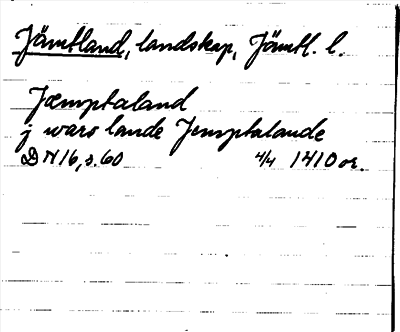 Jämtland, landskap, Jämtl. l.
Jæmptaland
j wars lande Jemptalande
DN 16, s. 60 4/4 1410 or.